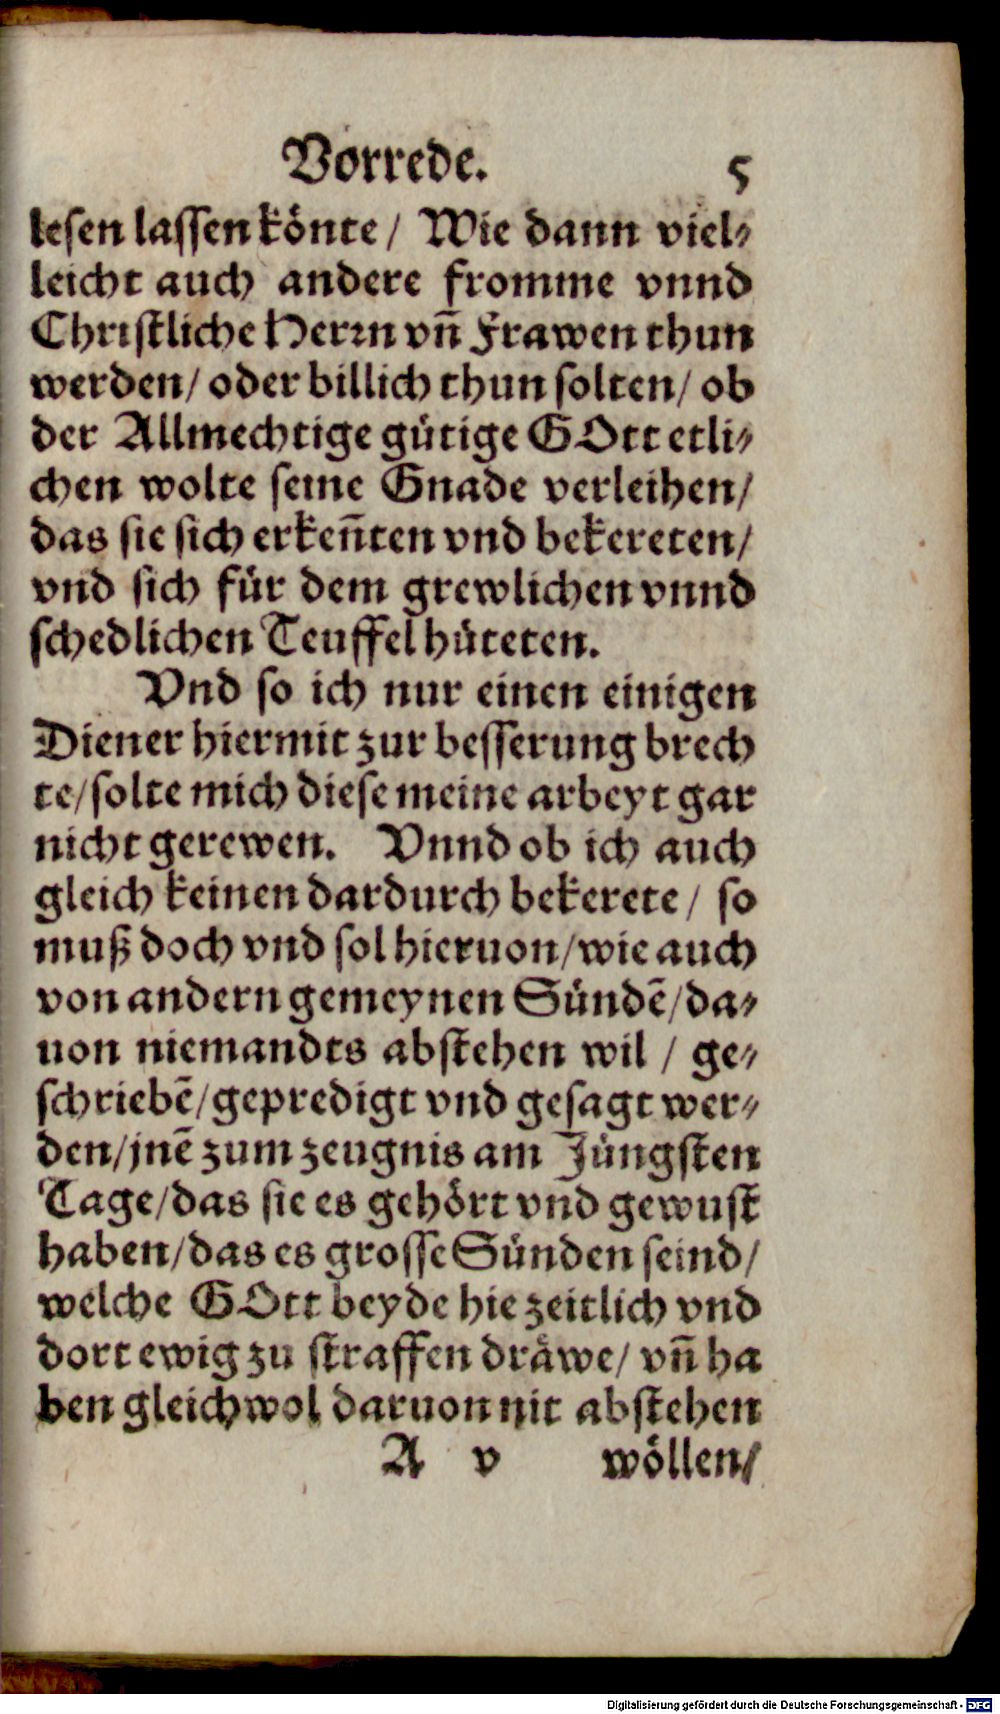 Vorrede. 5
lesen lassen könte/ Wie dann viel⸗
leicht auch andere fromme vnnd
Christliche Herrn vn̄ Frawen thun
werden/ oder billich thun solten/ ob
der Allmechtige gütige GOtt etli⸗
chen wolte seine Gnade verleihen/
das sie sich erken̄ten vnd bekereten/
vnd sich für dem grewlichen vnnd
schedlichen Teuffel hüteten.
Vnd so ich nur einen einigen
Diener hiermit zur besserung brech
te/ solte mich diese meine arbeyt gar
nicht gerewen. Vnnd ob ich auch
gleich keinen dardurch bekerete/ so
muß doch vnd sol hieruon/ wie auch
von andern gemeynen Sündē/ da⸗
uon niemandts abstehen wil / ge⸗
schriebē/ gepredigt vnd gesagt wer⸗
den/ jnē zum zeugnis am Jüngsten
Tage/ das sie es gehört vnd gewust
haben/ das es grosse Sünden seind/
welche GOtt beyde hie zeitlich vnd
dort ewig zu straffen dräwe/ vn̄ ha
ben gleichwol daruon nit abstehen
A v wöllen/
Digitalisierung gefördert durch die Deutsche Forschungsgemeinschaft - DFG